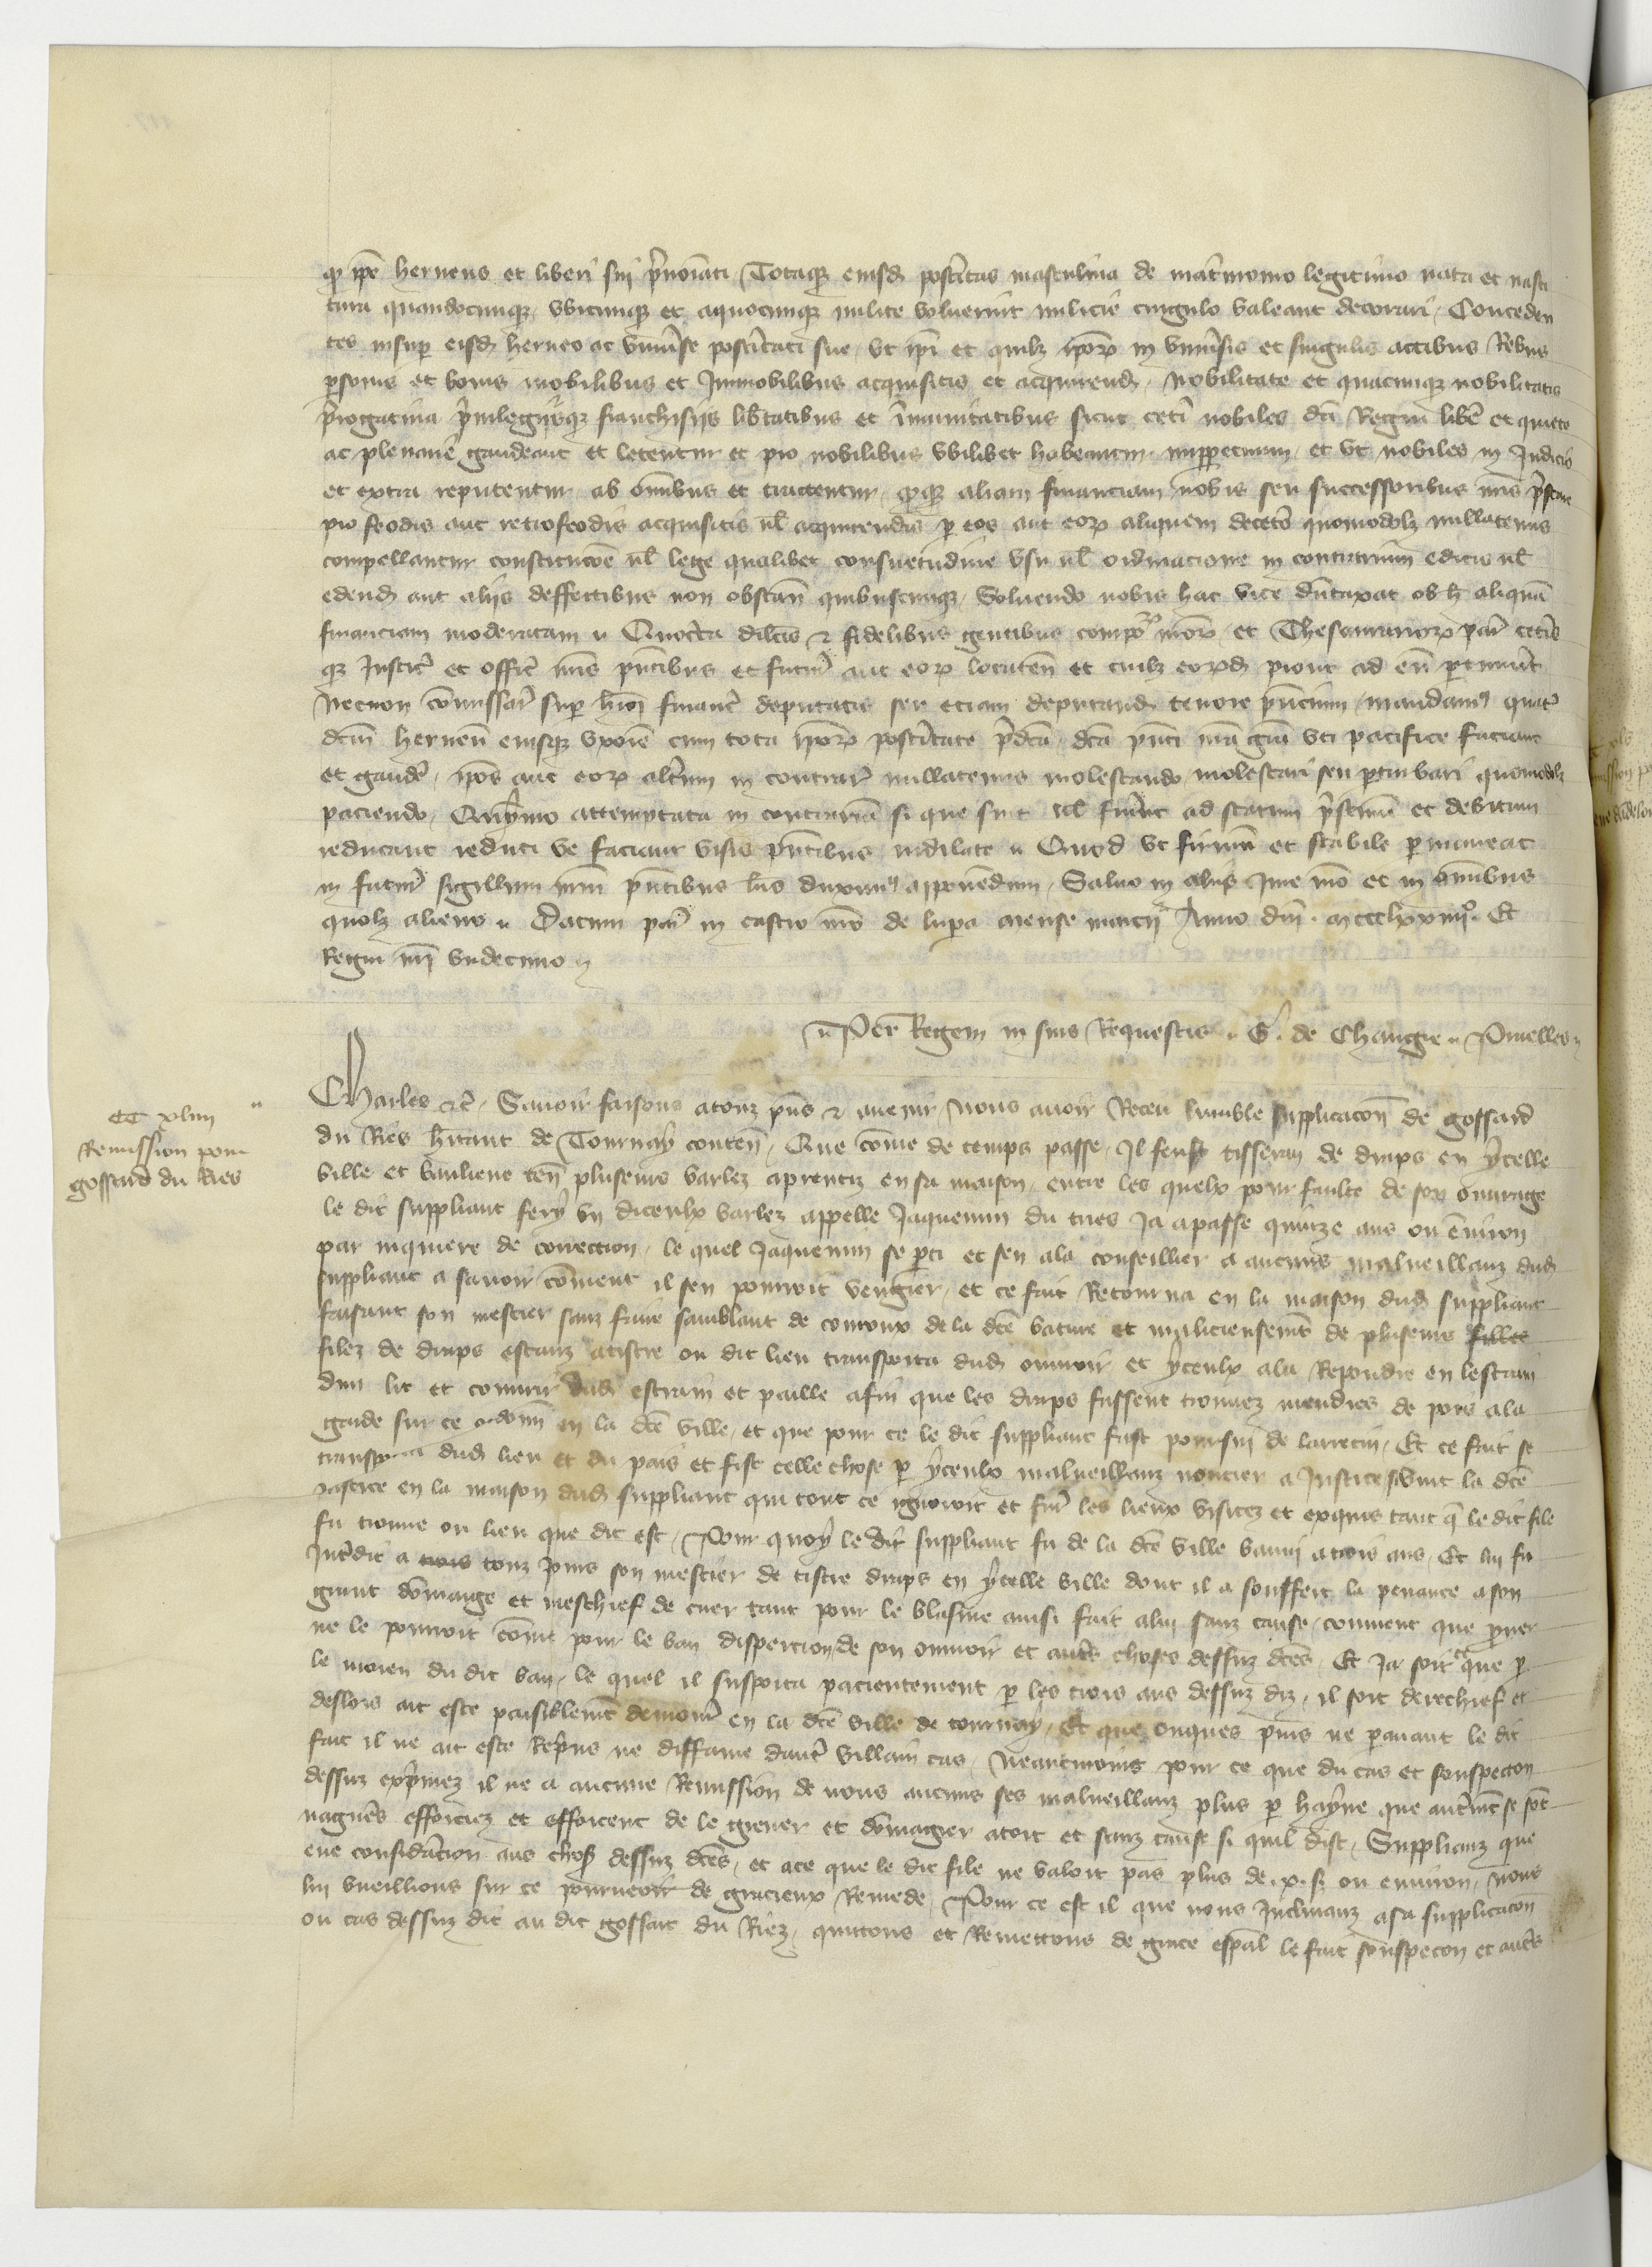 qr ipe herveus et liberi sui p̃noĩati Totaqz eiusd posĩtas masculina de mãtrimonio legitimo nata et nasci
tura quandocunqz ubicunqz et aquocunqz milite voluerint milicie cingulo valeant decorari Conceden
tes insup eisd herveo ac uniũse posteritati sue ut ipi et quilz ipoz in uniũsis et singulis actibus Rebus
psonis et bonis mobilibus et Immobilibus acquisitis et acquirend nobilitate et quacunqz nobilitatis
p̃rogativa p̃vilegiisqz franchisiis lib̃tatibus et ĩmunitatibus sicut cet̃i nobiles dc̃i Regni lib̃e et quiete
ac plenarie gaudeant et letentur et pro nobilibus ubilibet habeantur imppetuum et ut nobiles in Judicio
et extra reputentur ab om̃ibus et tractentur qqz aliam financiam nobis seu successoribus nr̃is p̃stare
pro feodis aut retrofeodis acquisitis ul acquirendis p eos aut eoz aliquem decet̃o quomodolz nullatenus
compellantur constitucõe ul lege qualibet consuetudine usu ul ordinacione in contrarium edictis ul
edend aut aliis deffectibus non obstañ quibuscunqz Solvendo nobis hac vice dũtaxat ob h̃ aliquã
financiam moderatam Quocc̃a dilc̃is et fidelibus gentibus compoz nr̃oz et Thesaurarioz par̃ cet̃is
qz Justic̃ et offic̃ nr̃is p̃ntibus et futur̃ aut eoz locateñ et cuilz eozd prout ad eũ ptinuit̃
necnon cõmissar̃ sup hm̃oi financ̃ deputatis seu etiam deputand tenore p̃ncium mandamus quat̃
dc̃m herveũ eiusqz uxorẽ cum tota ipoz post̃itate p̃dc̃a dc̃a p̃nti nr̃a grã uti pacifice faciant
et gaudẽ ipos aut eoz alt̃um in contrar̃ nullatenus molestando molestari seu pturbari quomodolz
paciendo Quinymo attemptata in contrariũ si que sint ul fuerint ad statum p̃stinũ et debitum
reducant reduci ve faciant visis p̃ntibus indilate Quod ut firmũ et stabile pmaneat
in futur̃ sigillum nr̃m p̃ntibus lr̃is duximus apponẽdum Salvo in aliis Jure nr̃o et in om̃ibus
quolz alieno Datum par̃ in castro nr̃o de lupa mense marcii Anno dñi mccclxxiiii° Et
Regni nr̃i undecimo
Per Regem in suis Requestis G. de Changie Pruelles
Charles etc̃ Savoir faisons atouz p̃ns et avenir nous avoir Receu lumble supplicacõn de gossard
du Ries h̃itant de Tournay conteñ Que cõme de temps passe Il feust tisseran de draps en ycelle
ville et banlieue teñ pluseurs varlez aprentiz en sa maison entre les quelx pour faulte de son ouvrage
le dit suppliant fery un diceulx varlez appelle Jaquemin du tries Ja apasse quinze ans ou ẽviron
par maniere de correction le quel Jaquemin se pti et sen ala conseillier a aucuns malveillanz dud
suppliant a savoir cõment il sen pourroit vengier et ce fait Retourna en la maison dud suppliant
faisant son mestier sanz faire samblant de courroux de la dc̃e bature et malicieusemt̃ de pluseurs filles
filez de draps estanz atistre ou dit lieu transporta dud ouvroir et yceulx ala Repondre en lestrain
dun lit et couvrir dud estrain et paille afin que les draps fussent trouvez mendres de pois ala
garde sur ce ordoñn en la dc̃e ville et que pour ce le dit suppliant fust poursui de larrecin Et ce fait se
transporta dud lieu et du pais et fist celle chose p yceulx malveillanz noncier a Justice Si vint la dc̃e
justice en la maison dud suppliant qui tout ce ignoroit et fur̃ les lieux visitez et exquis tant q̃ le dit file
fu trouve ou lieu que dit est Pour quoy le dit suppliant fu de la dc̃e ville banni atrois ans Et lui fu
Int̃dit a trois touz jours son mestier de tistre draps en ycelle ville dont il a souffert la penance ason
grant dõmaige et meschief de cuer tant pour le blasme ainsi fait alui sanz cause comment que p̃uver
ne le pourroit cõme pour le ban disperciõn de son ouvroir et autr̃s choses dessuz dc̃es Et ja soit ce que p
le moien du dit ban le quel il supporta pacientement p les trois ans dessuz diz il soit derechief et
deslors ait este paisiblemt̃ demour̃ en la dc̃e ville de tournay Et que onques puis ne pavant le dit
fait il ne ait este Rep̃ns ne diffame dautr̃ villain cas neantmoins pour ce que du cas et souspecon
dessuz exp̃mez il ne a aucune Remission de nous aucuns ses malveillanz plus p hayne que autr̃mt se sõt
nagueres efforciez et efforcent de le grever et dõmagier atort et sanz cause si quil dist Suppliant que
eue considerãcion aus choses dessuz dc̃es et ace que le dit file ne valoit pas plus de x s ou environ nous
lui vueillions sur ce pourveoir de gracieux Remede Pour ce est il que nous Inclinanz asa supplicacõn
ou cas dessuz dit au dit gossart du Riez quittons et Remettons de grace esp̃al le fait souspecon et autr̃s
CC xliiii
Remission pour
gossard du Ries